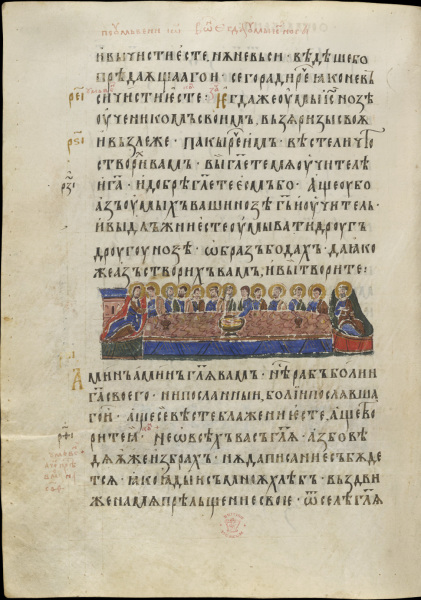 и вы чисти есте, нѫ не вьси · вѣдѣше бо
прѣдаѫщааго и · сего ради рече ꙗко не вь
си чисти есте · Егда же оумы і҃с нозѣ
оученикомъ своимъ, възѧ ризы своѫ
и възлеже · пакы рече имъ · вѣсте ли что
створих вамъ · вы гл҃ете мѧ оучителѣ
и г҃а · и добрѣ гл҃ете есмъ бо · аще оубо
азъ оумыхъ ваши нозѣ г҃ь и оучитель ·
и вы длъжни есте оумывати дроугъ
дроугоу нозѣ · ѡбразъ бо дахъ · да ꙗко
же азъ створихъ вамъ, и вы творите :
Аминъ аминъ гл҃ѫ вамъ · нѣ рабъ болии
г҃а своего · ни посланныи, болии пославша
го и · аще си вѣсте блажени есте, аще тво
рите ѧ · не ѡ всѣхъ васъ гл҃ѫ · азъ бо вѣ
дѧ ѧже избрах · нѫ да писание събѫде
тсѧ · ꙗко ꙗдыи съ мноѫ хлѣбъ · въздви
же на мѧ прѣльщение свое · ѿселѣ гл҃ѫ